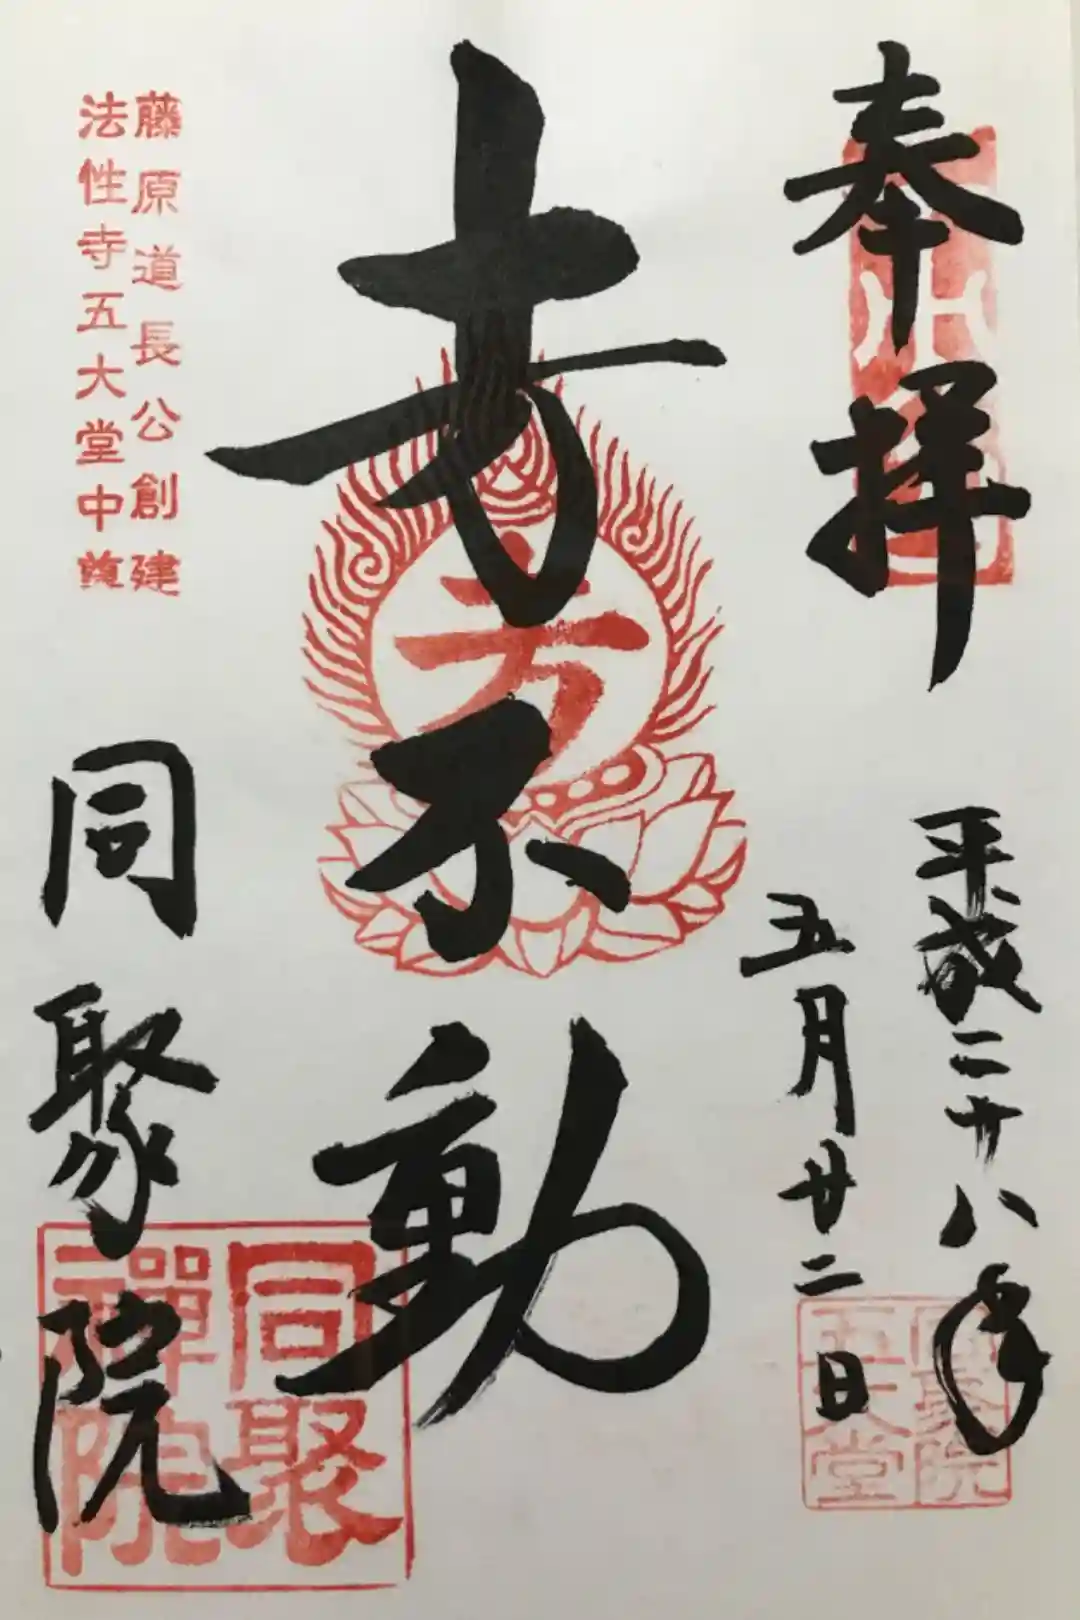 奉拝
平成二十八年
五月廿二日
同聚院
五大堂
十万不動
藤原道長公創建
法性寺五大堂中尊
同聚院
同聚
禪院